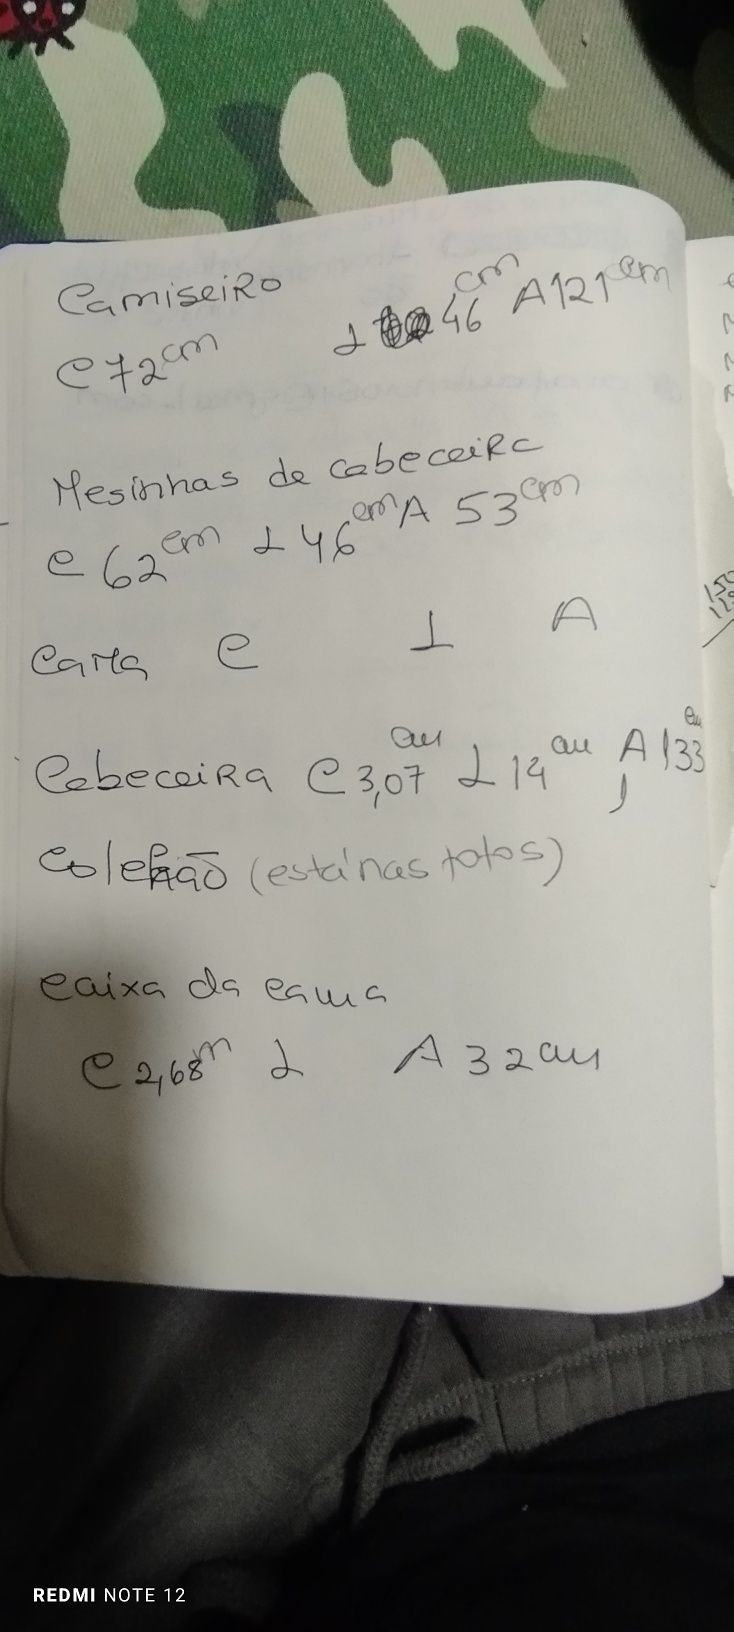 Camiseiro
C 72 cm L 46 cm A 121 cm
Mesinhas de cabeceira
C 62 cm L 46 cm A 53 cm
Cama C L A
Cabeceira C 3,07 cm L 14 cm A 133 cm
Colchão (está nas fotos)
Caixa da cama
C 2,68 m L A 32 cm
150
REDMI NOTE 12